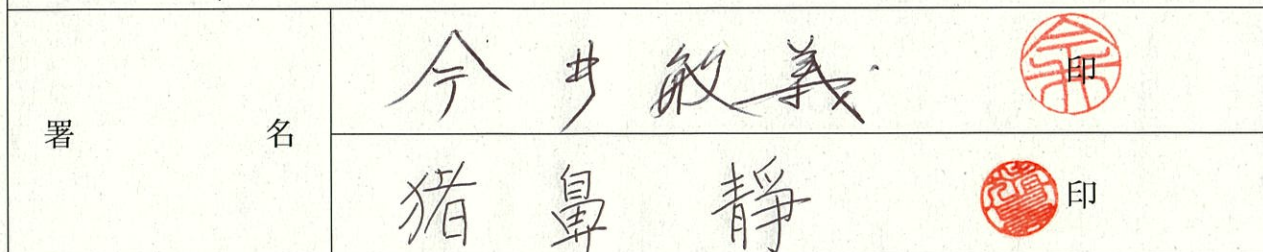 署名
今井敏義 印
猪鼻静 印